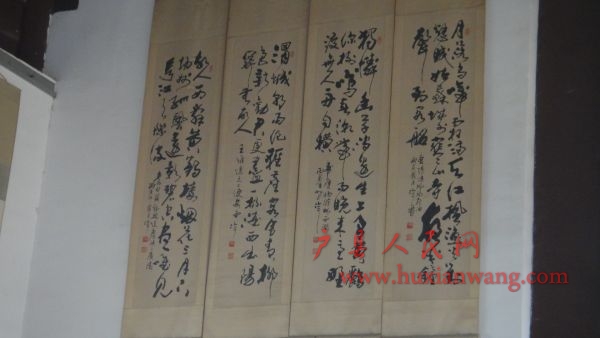 月落乌啼霜满天江枫渔火对
愁眠姑苏城外寒山寺夜半钟
声到客船
獨憐幽草澗邊生上有黄鹂
深樹鳴春潮带雨晚来急野
渡无人舟自横
渭城朝雨浥輕塵客舍青青柳
色新勸君更盡一杯酒西出陽
關無故人
故人西辞黄鹤楼烟花三月下
扬州孤帆遠影碧空尽唯見
長江天际流
户县人民网
www.huxianwang.com